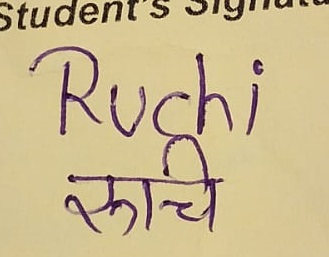 Student's Signatu
Ruchi
रूाची